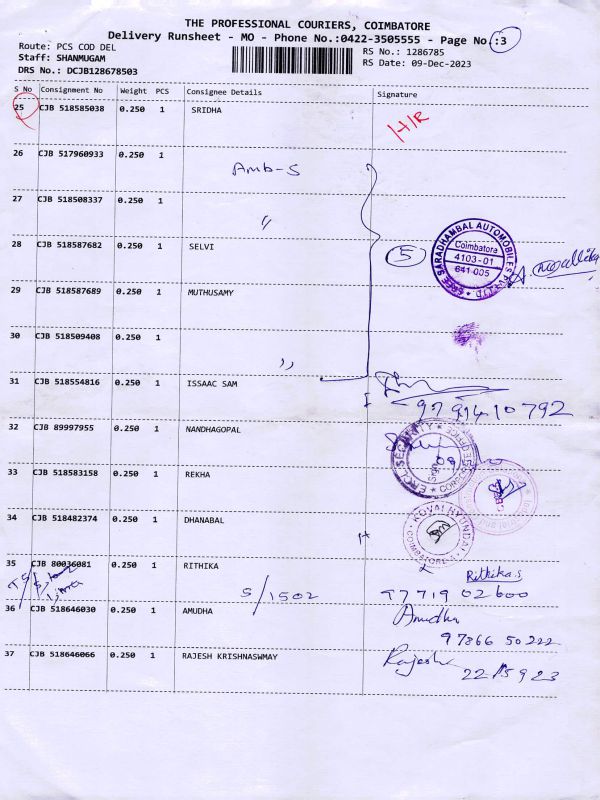 THE PROFESSIONAL COURIERS, COIMBATORE
Delivery Runsheet - MO - Phone No.:0422-3505555 - Page No.:3
Route: PCS COD DEL
RS No.: 1286785
Staff: SHANMUGAM
RS Date: 09-Dec-2023
DRS No.: DCJB128678503
S No Consignment No Weight PCS Consignee Details Signature
25 CJB 518585038 0.250 1 SRIDHA
H/R
26 CJB 517960933 0.250 1
Amb-S
27 CJB 518508337 0.250 1
"
28 CJB 518587682 0.250 1 SELVI
5
SREE SARADHAMBAL AUTOMOBILES PVT LTD
Coimbatore
4103-01
641 005
29 CJB 518587689 0.250 1 MUTHUSAMY
30 CJB 518509408 0.250 1
"
31 CJB 518554816 0.250 1 ISSAAC SAM
32 CJB 89997955 0.250 1 NANDHAGOPAL
SECURITY
33 CJB 518583158 0.250 1 REKHA
34 CJB 518482374 0.250 1 DHANABAL
KOVAI HYUNDAI
COIMBATORE
35 CJB 80036081 0.250 1 RITHIKA
Rithika.s
S/1502
97719 02600
36 CJB 518646030 0.250 1 AMUDHA
Amudha
97866 50222
37 CJB 518646066 0.250 1 RAJESH KRISHNASWMAY
Rajesh